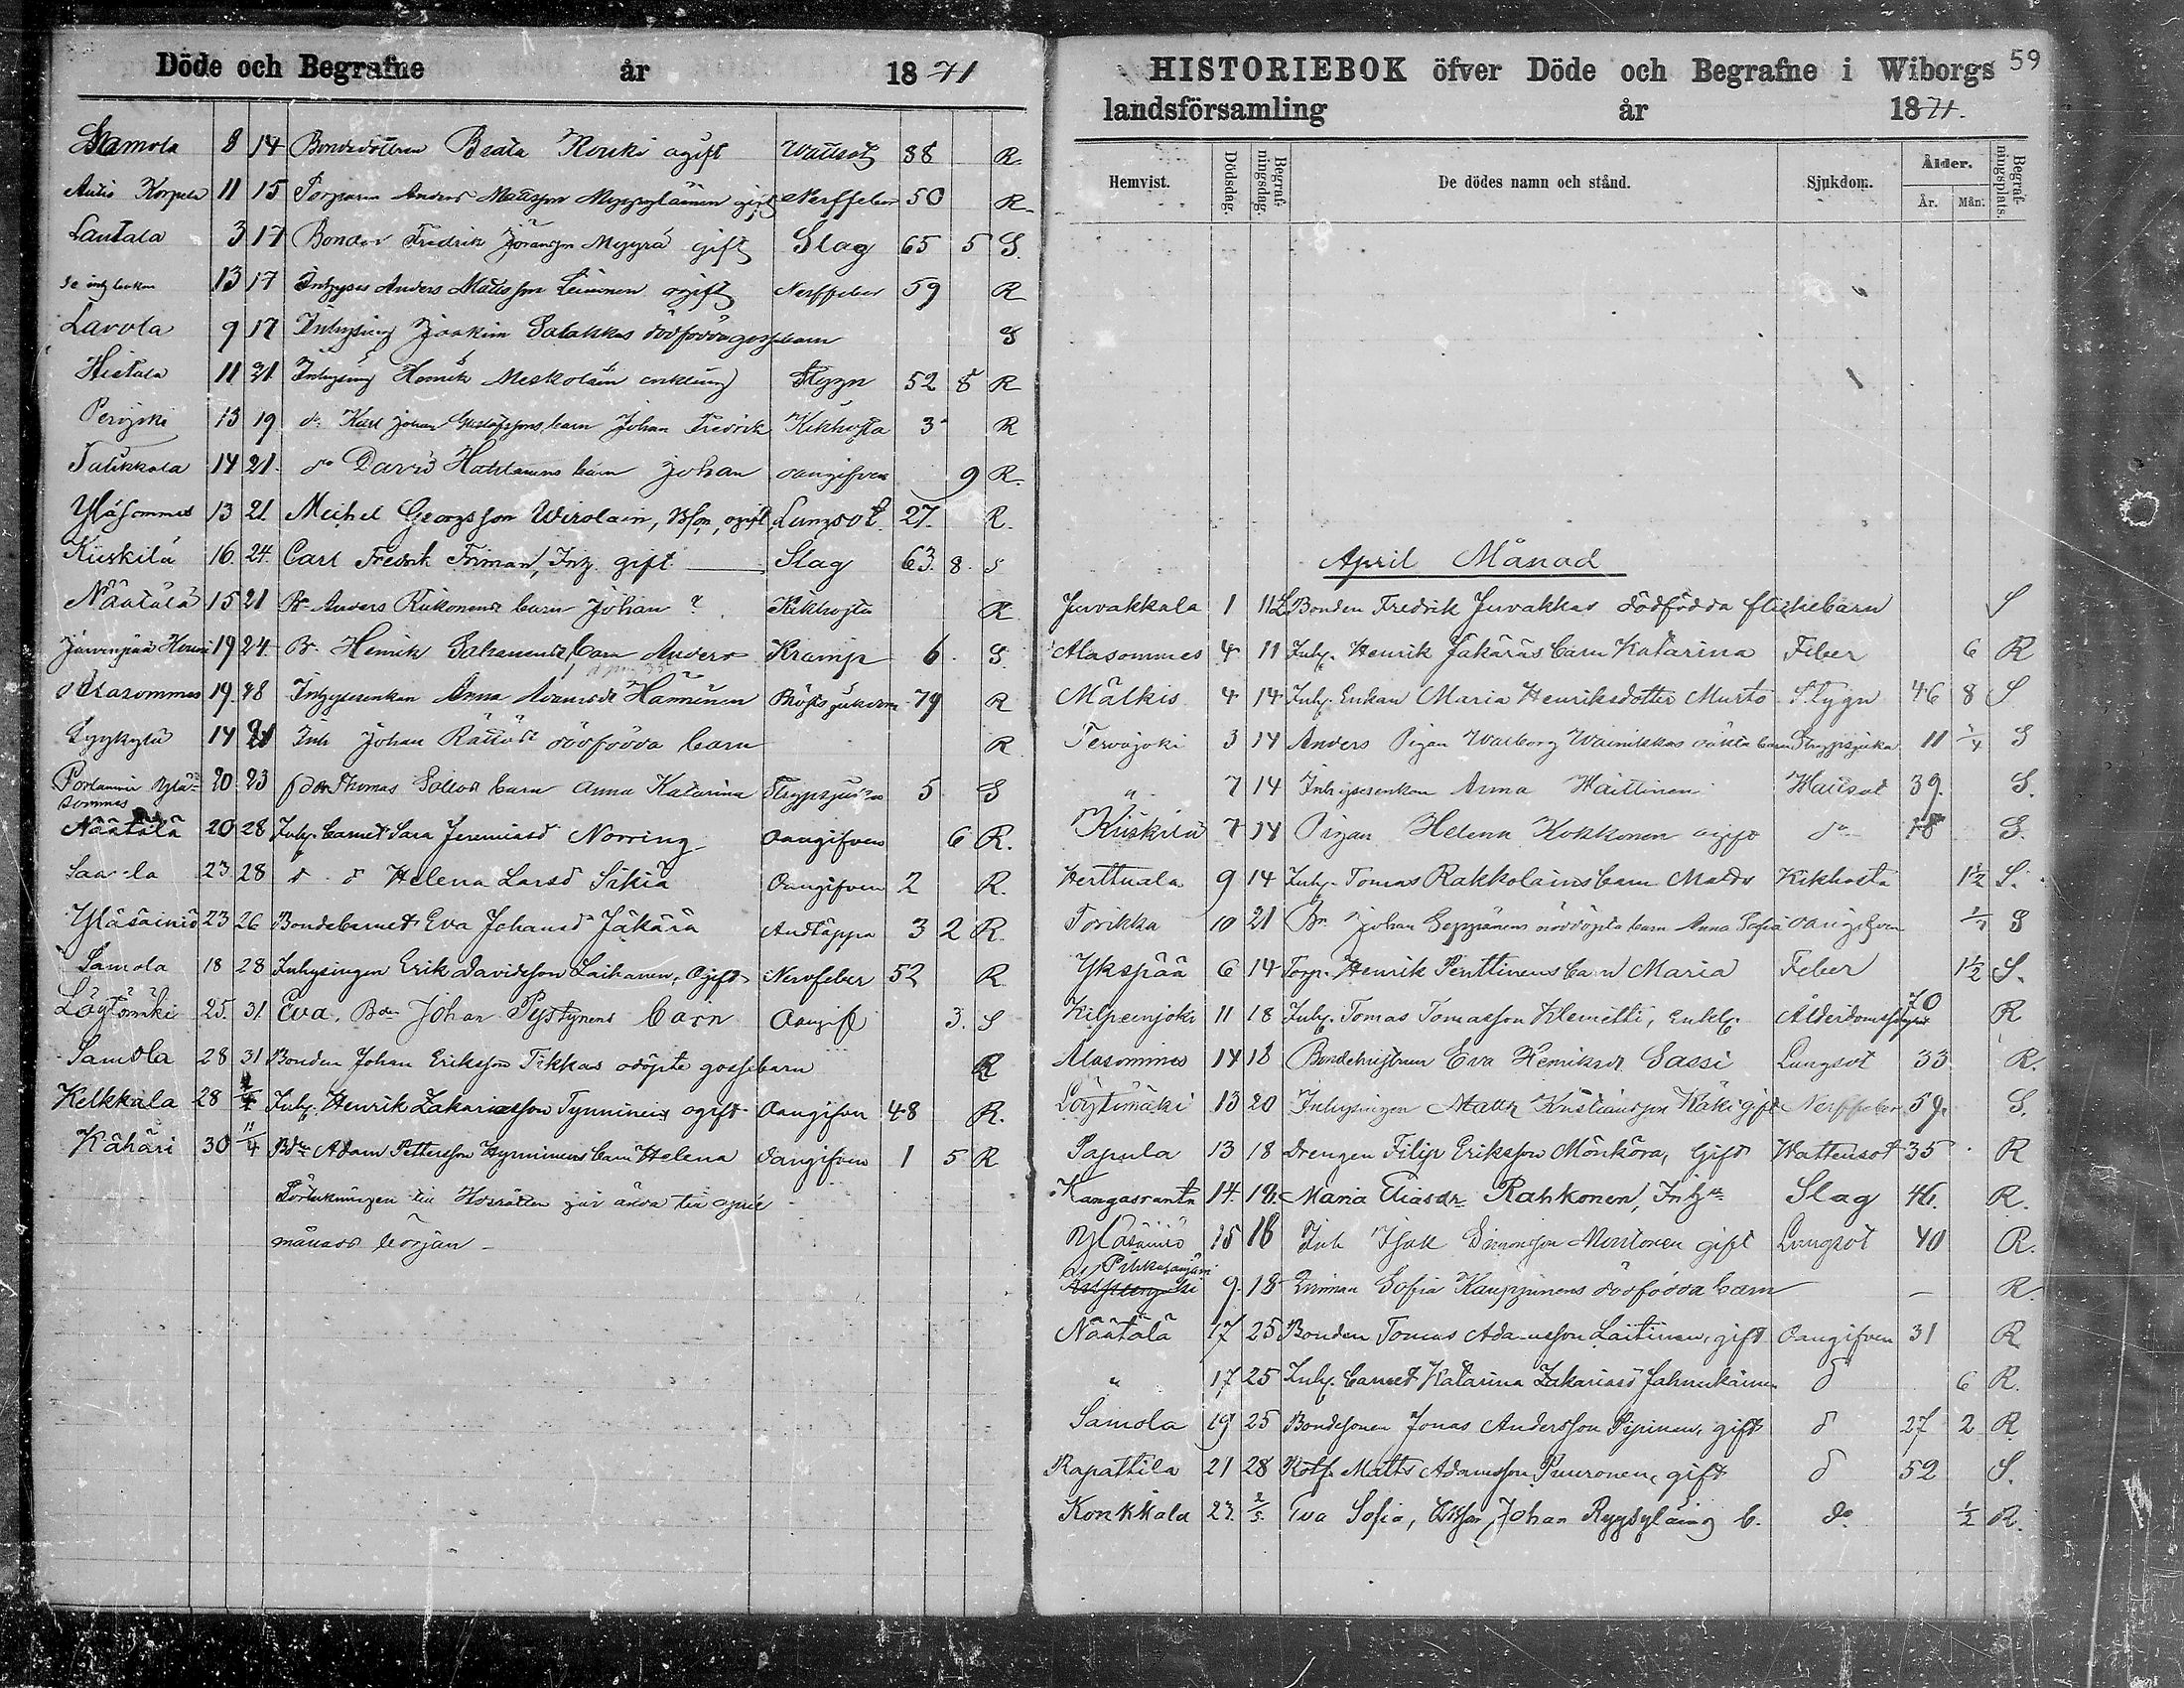 Döde och Begrafne år 1871
Samola 8 14 Bondedottren Beata Kouki ogift Wattusot 38 R.
Autio Korpela 11 15 Torparen Anders Mattsson gift Nerffeber 50 R.
Lautala 3 17 Bonden Fredrik Göransson Mäyrä gift Slag 65 5 S.
13 17 Inhyses Anders Mattsson Leinonen ogift Nerffeber 59 R
Lavola 9 17 Inhysing Joakim Salakkas dödfödda gossebarn S
Hietala 11 21 Inhysing Henrik Meskolain enkling Stygn 52 8 R
Perojoki 13 19 do Karl Johan Gustafssons barn Johan Fredrik Kikhosta 3 R
Talikkala 14 21 do David barn Johan oangifven 9 R.
Yläsommee 13 21. Michel Georgsson Wirolain, Bson, ogift Lungsot 27. R.
Kiiskilä 16. 24. Carl Fredrik Friman, Inh. gift Slag 63. 8. S
Näätälä 15 21 Bn Anders Kukonens barn Johan ? Kikhosta R
Järvenpää 19 24. Bn Henrik barn Anders Kramp 6. S.
Alasommee 19. 28 Inhysesenkan Anna Hänninen 79 R
Tyykylä 14 21 Inh Johan Rättös dödfödda barn R
Yläsommes 20 23 Thomas barn Anna Katarina Strypsjuka 5 S
Näätälä 20 28 Inhy. barnet Sara Jeremiasd Norring Oangifven 6 R.
23 28 d d Helena Larsd Sikiä Oangifven 2 R.
Yläsäiniö 23 26 Bondebarnet Eva Johansd Jäkärä Andtäppa 3 2 R.
Samola 18 28 Inhysingen Erik Davidsson Laihanen, Ogift Nervfeber 52 R.
Löytömäki 25. 31. Eva, Bdn Johan Pystynens barn Oangif 3. S
Samola 28 31 Bonden Johan Eriksson Tikkas odöpte gossebarn R
Kelkkala 28 4/4 Inhy. Henrik Zakariasson Tynninen ogift Oangifven 48 R.
Kähäri 30 11/4 Bdn Adam Pettersson Hynninens barn Helena Oangifven 1 5 R
Förteckningen till Hofrätten går ända till april
månads början
HISTORIEBOK öfver Döde och Begrafne i Wiborgs 59
landsförsamling år 1871.
Hemvist. Dödsdag. Begrafningsdag. De dödes namn och stånd. Sjukdom. Ålder. År. Mån. Begrafningsplats.
April Månad
Juvakkala 1 11 Bonden Fredrik Juvakkas dödfödda flickebarn S
Alasommes 4 11 Inhy. Henrik Jakäräs barn Katarina Feber 6 R
Mälkis 4 14 Inhy. Enkan Maria Henriksdotter Murto Stygn 46 8 S
Tervajoki 3 14 Anders Pigan Walborg Wainikkas oäkta barn Strypsjuka 11 1/4 S
" 7 14 Inhysesenkan Anna Haittinen Wattusot 39. S.
Kiiskilä 7 14 Pigan Helena Kokkonen ogift do 18 S.
Herttuala 9 14 Inhy. Tomas Rakkolains barn Matts Kikhosta 1 1/2 S.
Torikka 10 21 Bn Johan Seppänens nöddöpta barn Anna Sofia oangifven S
Ykspää 6 14 Torp. Henrik Penttinens barn Maria Feber 1 1/2 S.
Kilpeenjoki 11 18 Inhy. Tomas Tomasson Klemetti, Enkl. 70 R
Alasommes 14 18 Bondehustrun Eva Henriksdr Sassi Lungsot 33 R.
Löytömäki 13 20 Inhysingen Matts Kristiansson Käki gift Nerffeber 59. S.
Papula 13 18 Drengen Filip Eriksson Mönkörä, Gift Wattensot 35 R
Kangasranta 14. 19. Maria Eliasdr Rahkonen, Inh Slag 46. R.
Yläsäiniö 15 18 Inh Isak Simonsson Montonen gift Lungsot 40 R.
9. 18 Qvinnan Sofia Kauppinens dödfödda barn – R
Näätälä 17 25 Bonden Tomas Adamsson Laitinen, gift Oangifven 31 R
" 17 25 Inhy. barnet Katarina Zakariasd d 6 R.
Samola 19 25 Bondesonen Jonas Andersson Pipinen, gift d 27 2 R
Rapattila 21 28 Rotf. Matts Adamsson Puuronen, gift d 52 S.
Konkkala 23. 2/5. Eva Sofia, Johan b. do 1/2 R.